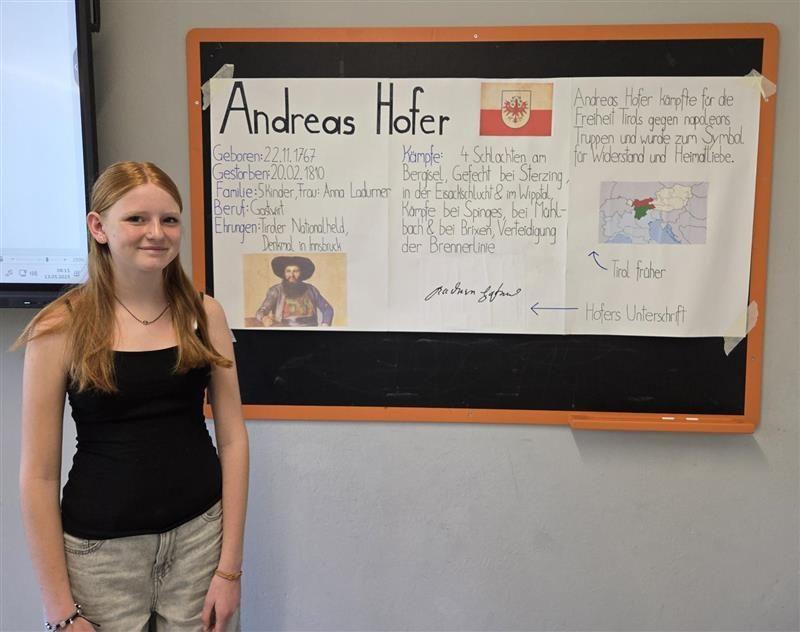 Andreas Hofer
Geboren: 22.11.1767
Gestorben: 20.02.1810
Familie: 5 Kinder, Frau: Anna Ladurner
Beruf: Gastwirt
Ehrungen: Tiroler Nationalheld,
Denkmal in Innsbruck
Kämpfe: 4 Schlachten am
Bergisel, Gefecht bei Sterzing,
in der Eisackschlucht & im Wipptal
Kämpfe bei Spinges, bei Mühl-
bach & bei Brixen, Verteidigung
der Brennerlinie
Andreas Hofer kämpfte für die
Freiheit Tirols gegen napoleons
Truppen und wurde zum Symbol
für Widerstand und Heimatliebe.
Tirol früher
Hofers Unterschrift
08:11
13.05.2025